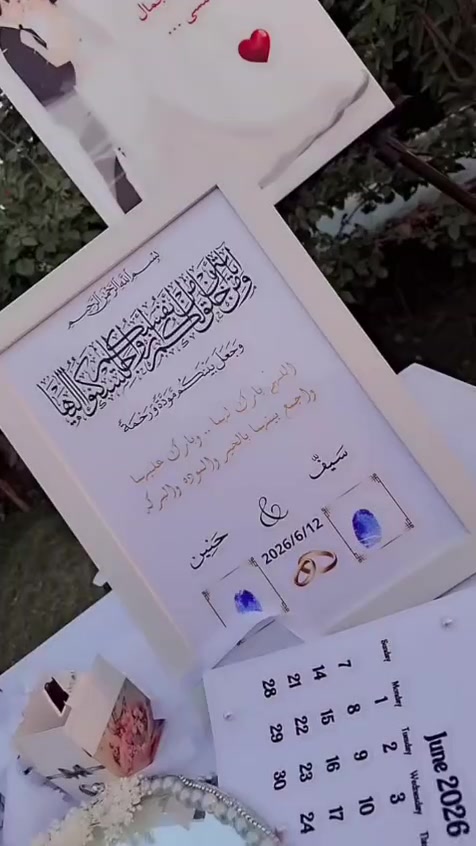 بسم الله الرحمن الرحيم
ومن آياته أن خلق لكم من أنفسكم أزواجا لتسكنوا إليها
وَجَعَلَ بَيْنَكُم مَوَدَّةً وَرَحْمَةً
اللهم بارك لهما .. وبارك عليهما
واجمع بينهما بالخير والموده والبركه
سَيفّ
&
حَنِين
2026/6/12
June 2026
Sunday Monday Tuesday Wednesday
1 2 3
7 8 9 10
14 15 16 17
21 22 23 24
28 29 30